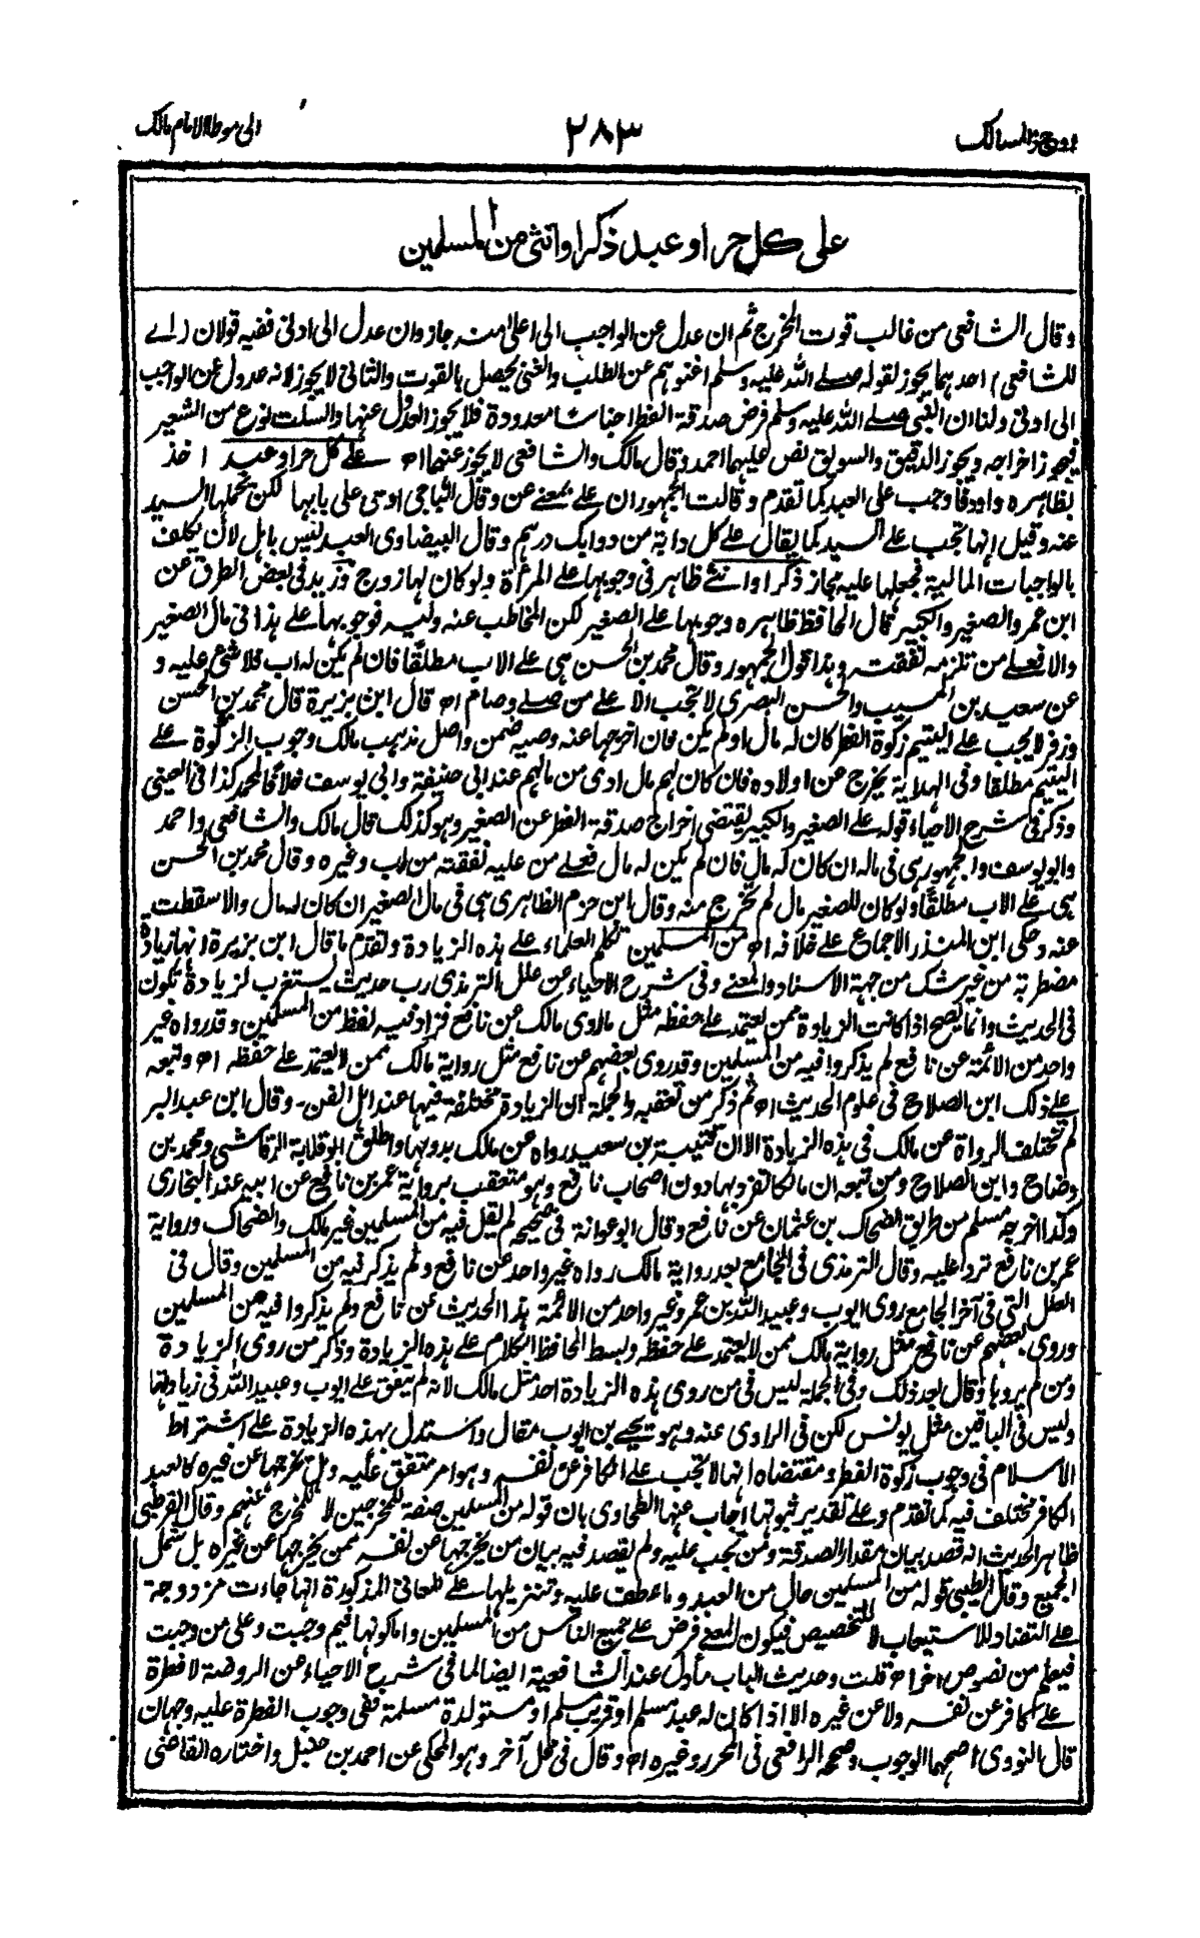 اوجز المسالك
٢٨٣
الى موطا الامام مالك
على كل حر او عبد ذكر او انثى من المسلمين
وقال الشافعى من غالب قوت المخرج ثم ان عدل عن الواجب الى اعلى منه جاز وان عدل الى ادنى ففيه قولان (اے
للشافعى) احدهما يجوز لقوله صلے الله عليه وسلم اغنوهم عن الطلب والغنى يحصل بالقوت والثانى لا يجوز لانه عدول عن الواجب
الى ادنى ولنا ان النبى صلے الله عليه وسلم فرض صدقة الفطر اجناسا معدودة فلا يجوز العدول عنها والسلت نوع من الشعير
فيجوز اخراجه ويجوز الدقيق والسويق نص عليهما احمد وقال مالك والشافعى لا يجوز عنهما اھ علے كل حر او عبد اخذ
بظاهره داود فاوجب على العبد كما تقدم وقالت الجمهور ان علے بمعنے عن وقال الباجى او هى على بابها لكن يحملها السيد
عنه وقيل انها تجب علے السيد كما يقال علے كل دابة من دوابك درهم وقال البيضاوى العبد ليس باهل لان يكلف
بالواجبات المالية فجعلها عليه مجاز ذكر او انثے ظاهر فى وجوبها علے المرأة ولو كان لها زوج وزيد فى بعض الطرق عن
ابن عمر والصغير والكبير قال الحافظ ظاهره وجوبها علے الصغير لكن المخاطب عنه وليه فوجوبها علے هذا فى مال الصغير
والا فعلے من تلزمه نفقته وهذا قول الجمهور وقال محمد بن الحسن هى علے الاب مطلقا فان لم يكن له اب فلا شئ عليه و
عن سعيد بن المسيب والحسن البصرى لا تجب الا علے من صلے وصام اھ قال ابن بزيزة قال محمد بن الحسن
وزفر لا يجب علے اليتيم زكوة الفطر كان له مال او لم يكن فان اخرجها عنه وصيه ضمن واصل مذهب مالك وجوب الزكوة علے
اليتيم مطلقا وفى الهداية يخرج عن اولاده فان كان لهم مال ادى من مالهم عند ابى حنيفة وابى يوسف خلافا لمحمد كذا فى العينى
وذكر فى شرح الاحياء قوله علے الصغير والكبير يقتضى اخراج صدقة الفطر عن الصغير وهو كذلك قال مالك والشافعى واحمد
وابو يوسف والجمهور هى فى ماله ان كان له مال فان لم يكن له مال فعلے من عليه نفقته من اب وغيره وقال محمد بن الحسن
هى علے الاب مطلقا ولو كان للصغير مال لم تخرج منه وقال ابن حزم الظاهرى هى فى مال الصغير ان كان له مال والا سقطت
عنه وحكى ابن المنذر الاجماع علے خلافه اھ من المسلمين تكلم العلماء علے هذه الزيادة وتقدم ما قال ابن بزيزة انها زيادة
مضطربة من غير شك من جهة الاسناد والمعنے وفى شرح الاحياء عن علل الترمذى رب حديث يستغرب لزيادة تكون
فى الحديث وانما يصح اذا كانت الزيادة ممن يعتمد علے حفظه مثل ما روى مالك عن نافع فزاد فيه لفظ من المسلمين وقد رواه غير
واحد من الائمة عن نافع لم يذكروا فيه من المسلمين وقد روى بعضهم عن نافع مثل رواية مالك ممن لا يعتمد علے حفظه اھ وتبعه
علے ذلك ابن الصلاح فى علوم الحديث اھ ثم ذكر من تعقبه والجملة ان الزيادة مختلفة فيها عند اهل الفن۔ وقال ابن عبد البر
لم تختلف الرواة عن مالك فى هذه الزيادة الا ان قتيبة بن سعيد رواه عن مالك بدونها واطلق ابو قلابة الرقاشى ومحمد بن
وضاح وابن الصلاح ومن تبعه ان مالكا تفرد بها دون اصحاب نافع وهو متعقب برواية عمر بن نافع عن ابيه عند البخارى
وكذا اخرجه مسلم من طريق الضحاك بن عثمان عن نافع وقال ابو عوانة فى صحيحه لم يقل فيه من المسلمين غير مالك والضحاك ورواية
عمر بن نافع ترد عليه وقال الترمذى فى الجامع بعد رواية مالك رواه غير واحد عن نافع ولم يذكر فيه من المسلمين وقال فى
العلل التى فى آخر الجامع روى ايوب وعبيد الله بن عمر وغير واحد من الائمة هذا الحديث عن نافع ولم يذكروا فيه من المسلمين
وروى بعضهم عن نافع مثل رواية مالك ممن لا يعتمد علے حفظه وبسط الحافظ الكلام علے هذه الزيادة وذكر من روى الزيادة
ومن لم يروها وقال بعد ذلك وفى الجملة ليس فى من روى هذه الزيادة احد مثل مالك لانه لم يتفق علے ايوب وعبيد الله فى زيادتها
وليس فى الباقين مثل يونس لكن فى الراوى عنه وهو يحيے بن ايوب مقال واستدل بهذه الزيادة علے اشتراط
الاسلام فى وجوب زكوة الفطر ومقتضاه انها لا تجب علے الكافر عن نفسه وهو امر متفق عليه وهل يخرجها عن غيره كالعبد
الكافر مختلف فيه كما تقدم وعلے تقدير ثبوتها اجاب عنها الطحاوى بان قوله من المسلمين صفة للمخرجين لا للمخرج عنهم وقال القرطبى
ظاهر الحديث انه قصد بيان مقدار الصدقة ومن تجب عليه ولم يقصد فيه بيان من يخرجها عن نفسه ممن يخرجها عن غيره بل شمل
الجميع وقال الطيبى قوله من المسلمين حال من العبد وما عطف عليه وتنزيلها علے المعانى المذكورة انها جاءت مزدوجة
علے التضاد للاستيعاب لا للتخصيص فيكون المعنے فرض علے جميع الناس من المسلمين واما كونها فيم وجبت وعلى من وجبت
فيعلم من نصوص اخر اھ قلت وحديث الباب مأول عند الشافعية ايضا لما فى شرح الاحياء عن الروضة لا فطرة
علے كافر عن نفسه ولا عن غيره الا اذا كان له عبد مسلم او قريب مسلم او مستولدة مسلمة ففى وجوب الفطرة عليه وجهان
قال النووى اصحهما الوجوب وصححه الرافعى فى المحرر وغيره اھ وقال فى محل آخر وهو المحكى عن احمد بن حنبل واختاره القاضى